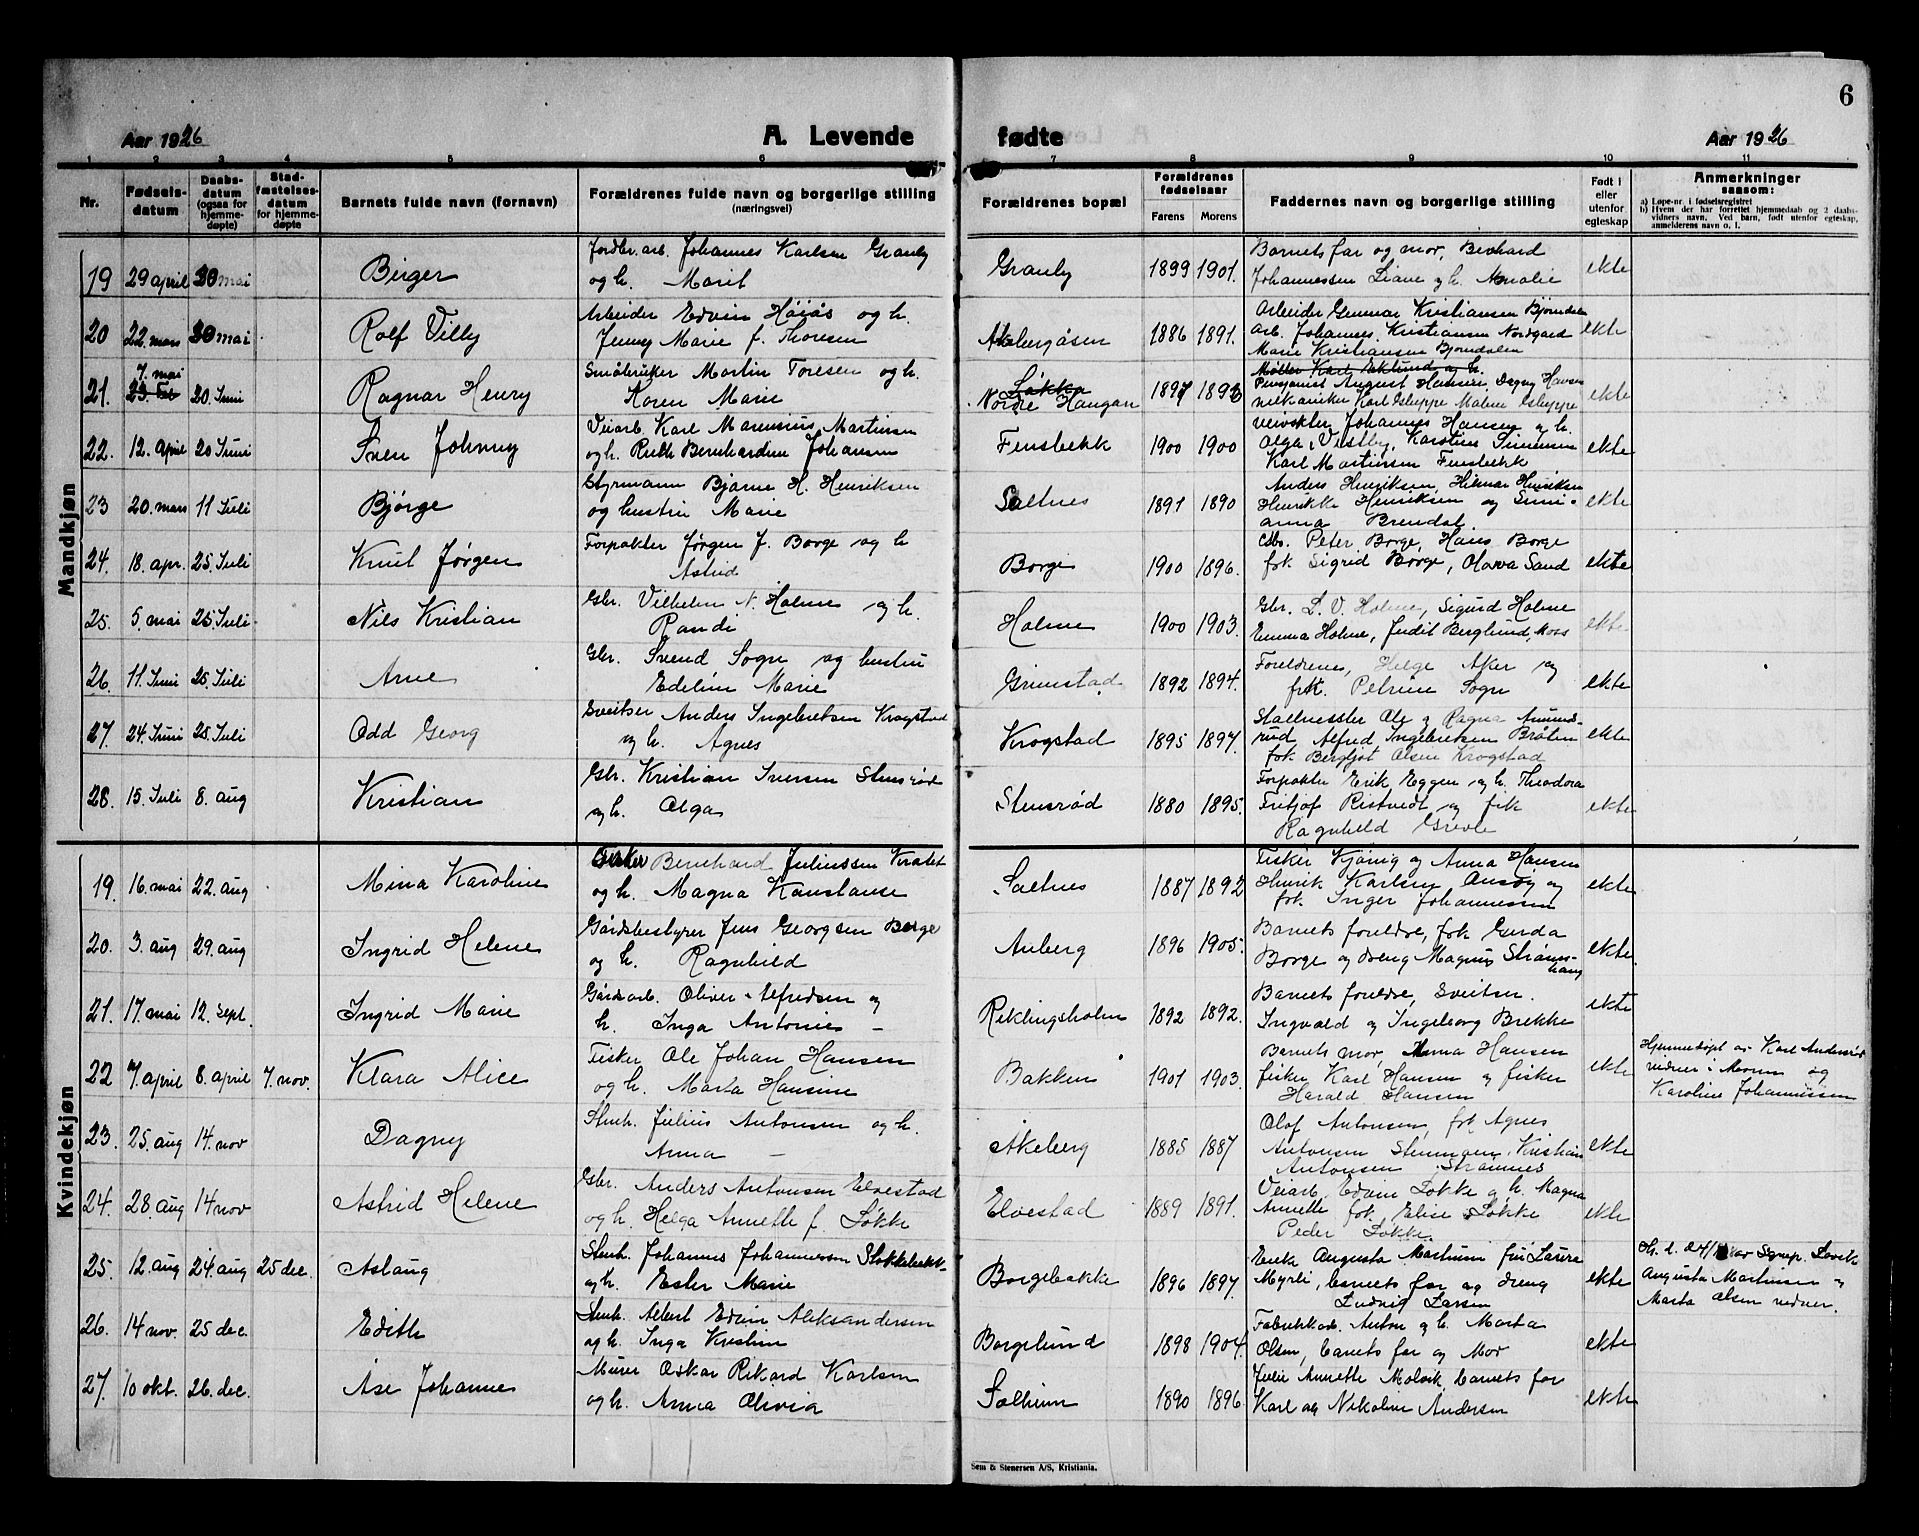 6
Aar 1926 A. Levende fødte Aar 1926
1 2 3 4 5 6 7 8 9 10 11
Nr.
Fødselsdatum
Daabsdatum (ogsaa for hjemmedøpte)
Stadfæstelsesdatum for hjemmedøpte
Barnets fulde navn (fornavn)
Forældrenes fulde navn og borgerlige stilling
(næringsvei)
Forældrenes bopæl
Forældrenes fødselsaar
Farens Morens
Faddernes navn og borgerlige stilling
Født i eller utenfor egteskap
Anmerkninger
saasom:
a) Løpe-nr. i fødselsregistret
b) Hvem der har forrettet hjemmedaab og 2 daabsvidners navn. Ved barn, født utenfor egteskap, anmelderens navn o. l.
Mandkjøn
19 29 april 30 mai Birger
Jordbr.arb. Johannes Karlsen Granby
og h. Marit
Granby 1899 1901.
Barnets far og mor, Bernhard
Johannessen Liane og h. Amalie
ekte
20 22. mars 30 mai Rolf Villy
Arbeider Edvin Høiås og h.
Jenny Marie f. Thoresen
Akebergåsen 1886 1891.
Arbeider Gunnar Kristiansen Bjørndalen
arb. Johannes Kristiansen Nordgard
Marie Kristiansen Bjørndalen
ekte
21. 7. mai 23 Feb 20. Juni Ragnar Henry
Småbruker Martin Toresen og h.
Karen Marie
Løkka
Nordre Haugan 1897 1893
Møller Karl Eklund og h.
Pensjonist August Hansen Dagny Hansen
mekaniker Karl Gleppe Malene Gleppe
ekte
22. 12. april 20 Juni Sven Johnny
Veiarb. Karl Marensius Martinsen
og h. Ruth Bernhardine Johansen
Fensbekk 1900 1900
veivokter Johannes Hansen og h.
Olga, Vestby, Karstine Simensen
Karl Martinsen Fensbekk
ekte
23 20. mars 11 Juli Bjørge
Styrmann Bjarne H. Henriksen
og hustru Marie
Saltnes 1891 1890
Anders Henriksen, Hilmar Henriksen
Henrikke Henriksen og Simi-
anna Brendal.
ekte
24. 18. apr. 25. Juli Knut Jørgen
Forpakter Jørgen J. Borge og h
Astrid
Borge 1900 1896.
Gbr. Peter Borge, Hans Borge
frk Sigrid Borge, Olava Sand
ekte
25. 5. mai 25. Juli Nils Kristian
Gbr. Vilhelm N. Holme og h.
Randi
Holme 1900 1903.
Gbr. L. V. Holme, Sigurd Holme
Emma Holme, Judit Berglund, Moss
ekte
26. 11. Juni 25. Juli Arne
Gbr. Svend Sogn og hustru
Edeline Marie
Grimstad 1892 1894.
Foreldrenes, Helge Aker og
frk. Petrine Sogn
ekte
27. 24. Juni 25. Juli Odd Georg
Sveitser Anders Ingebretsen Krogstad
og h. Agnes
Krogstad 1895 1897.
Ole og Ragna Amund-
rud Alfred Ingebretsen Bråten
frk Bergljot Olsen Krogstad
ekte
28. 15. Juli 8. aug Kristian
Gbr. Kristian Iversen Stensrød
og h. Olga
Stensrød 1880 1895.
Forpakter Erik Eggen og h. Theodora
Fritjof Ristvedt og frk
Ragnhild Grevle
ekte
Kvindekjøn
19. 16. mai 22. aug Mina Karoline
Fisker Bernhard Juliussen
og h. Magna Konstanse
Saltnes 1887 1892
Fisker Kjönig og Anna Hansen
Henrik Karlsen og
frk. Inger Johannessen
ekte
20. 3. aug 29. aug Ingrid Helene
Gårdsbestyrer Jens Georgsen Borge
og h. Ragnhild
Anberg 1896 1905.
Barnets foreldre, frk Gerda
Borge og dreng Magnus Strøms-
haug
ekte.
21. 17. mai 12. sept. Ingrid Marie
Gårdsarb. Oliver Alfredsen og
h. Inga Antonie –
Reklingsholm 1892 1892.
Barnets foreldre, Sveitser.
Ingvald og Ingeborg Brekke
ekte
22 7. april 8. april 7. nov. Klara Alice
Fisker Ole Johan Hansen
og h. Marta Hansine
Bakken 1901 1903.
Barnets mor, Anna Hansen
fisker Karl Hansen og fisker
Harald Hansen
ekte
Hjemmedøpt av Karl Andersrød
vidner: Moren og
Karoline Johannessen
23. 25. aug 14. nov Dagny
Stenh. Julius Antonsen og h.
Anna –
Akeberg 1885 1887
Olaf Antonsen, frk Agnes
Antonsen Kristian
Antonsen Strømnes
ekte
24. 28. aug 14 nov Astrid Helene
Gbr. Anders Antonsen Elvestad
og h. Helga Annette f. Løkke
Elvestad 1889 1891.
Veiarb. Edvin Løkke og h. Magna
Annette frk. Elise Løkke
Peder Løkke.
ekte
25. 12. aug 24. aug 25 dec. Aslaug
Stenh. Johannes Johannessen Stokkebekk
og h. Ester Marie
Borgebakke 1896 1897.
Enke Augusta Martinsen fru Laura
Myrli, barnets far og dreng
Ludvig Larsen
ekte
Augusta Martinsen og
Marta Olsen vidner.
26. 14 nov. 25 dec. Edith
Stenh. Albert Edvin Aleksandersen
og h. Inga Kristine
Borgelund 1898 1904.
Fabrikkarb. Anton og h. Marta
Olsen, barnets far og Mor
ekte
27. 10 okt. 26. dec. Åse Johanne
Murer Oskar Rikard Karlsen
og h. Anna Olivia
Solheim 1890 1896.
Julie Annette Molvik, barnets far
Karl og Nikoline Andersen
ekte
Sem & Stenersen A/S, Kristiania.